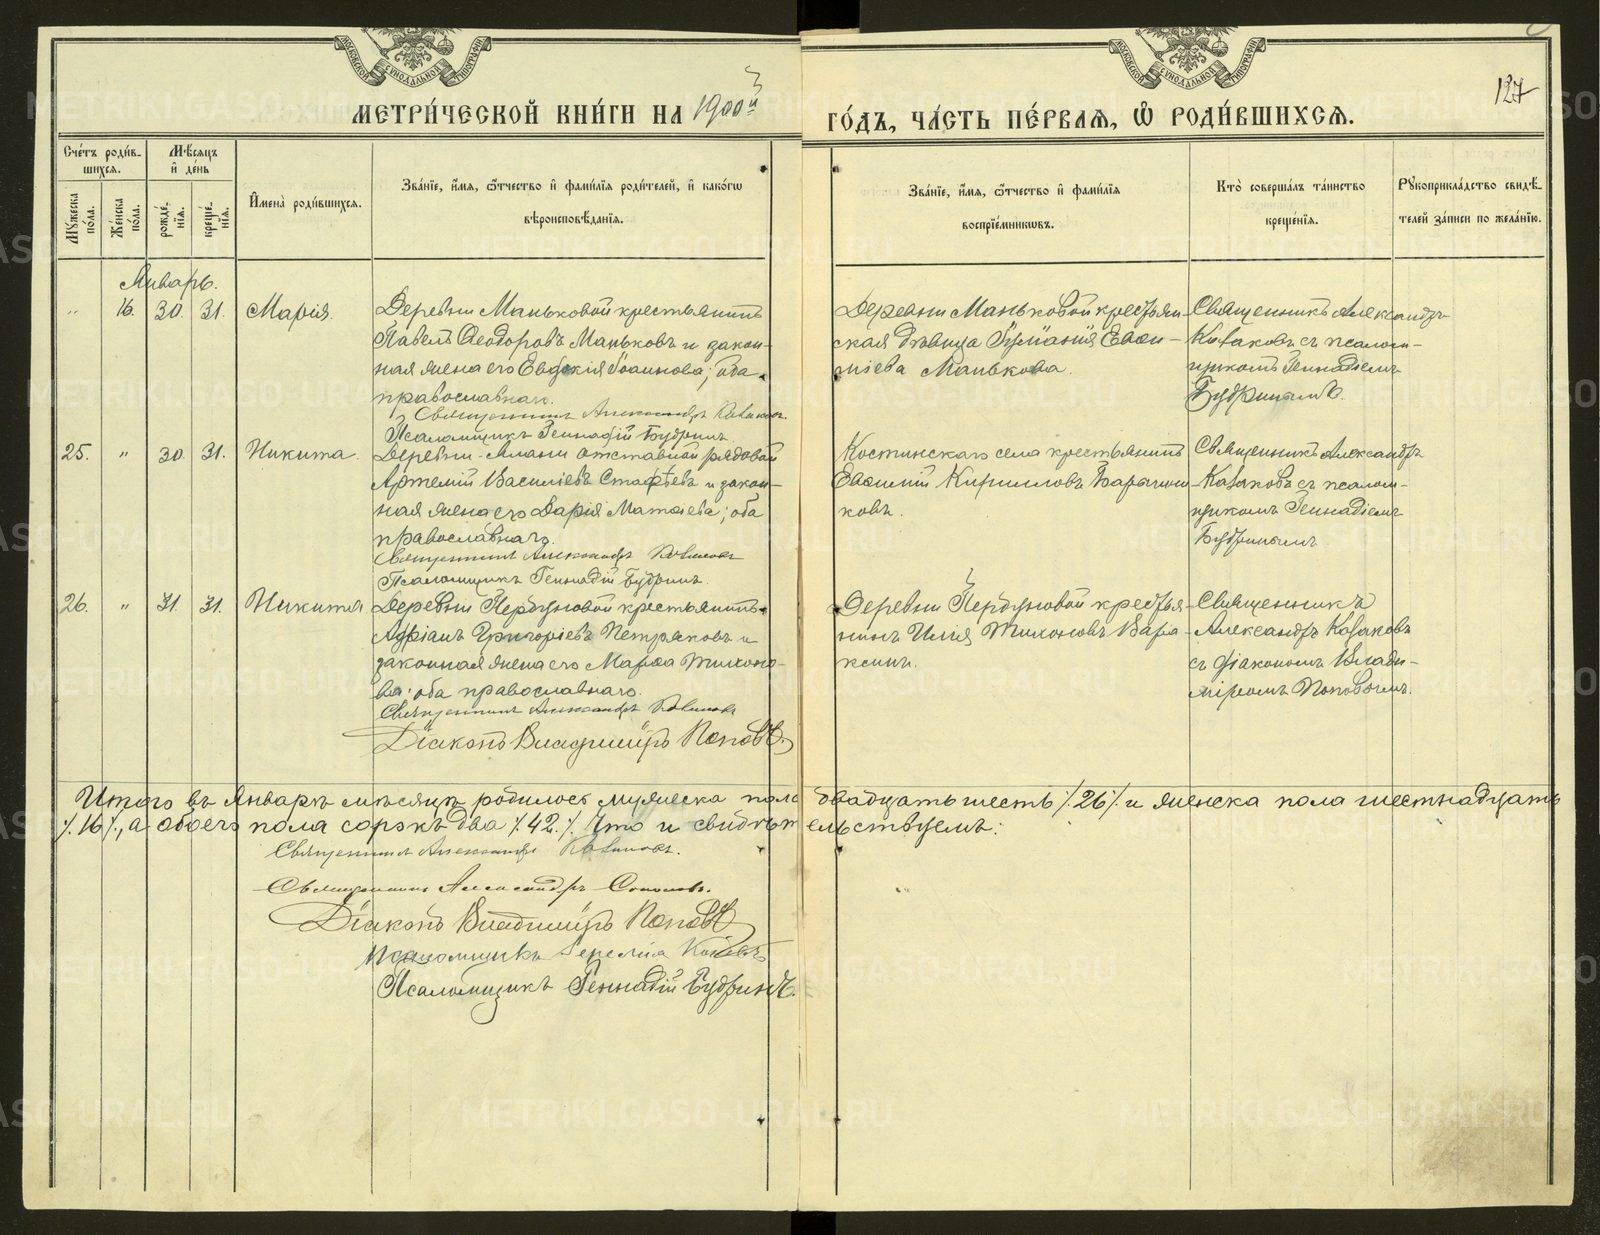 МОСКОВСКОЙ СѴНОДАЛЬНОЙ ТИПОГРАФІИ
МОСКОВСКОЙ СѴНОДАЛЬНОЙ ТИПОГРАФІИ
127
МЕТРИ́ЧЕСКОЙ КНИ́ГИ НА 1900й ГО́ДЪ, ЧА́СТЬ ПЕ́РВАѦ, Ѡ҆ РОДИ́ВШИХСѦ.
Сче́тъ роди́в-
шихсѧ.
Мѣ́сѧцъ
и҆ де́нь
Мꙋ́жеска по́ла.
Же́нска по́ла.
рожде́-
нїѧ.
креще́-
нїѧ.
И҆мена̀ роди́вшихсѧ.
Зва́нїе, и҆́мѧ, ѻ҆́тчество и҆ фами́лїѧ роди́телей, и҆ како́гѡ
вѣроисповѣ́данїѧ.
Зва́нїе, и҆́мѧ, ѻ҆́тчество и҆ фами́лїѧ
воспрїе́мникѡвъ.
Кто̀ соверша́лъ та́инство
креще́нїѧ.
Рꙋкоприкла́дство свидѣ́-
телей за́писи по жела́нїю.
Январь.
" 16. 30. 31. Марія.
Деревни Маньковой крестьянинъ
Павелъ Ѳеодоровъ Маньковъ и закон-
ная жена его Евдокія Іоаннова; оба
православнаго.
Священникъ Александръ Казаковъ.
Псаломщикъ Геннадій Будринъ
Деревни Маньковой крестьян-
ская дѣвица Евѳи-
міева Манькова.
Священникъ Александръ
Казаковъ съ псалом-
щикомъ Геннадіемъ
Будринымъ.
25. " 30. 31. Никита.
Деревни отставной рядовой
Артемій Василіевъ Стафѣевъ и закон-
ная жена его Дарія Матѳіева; оба
православнаго.
Священникъ Александръ Казаковъ
Псаломщикъ Геннадій Будринъ.
Костинскаго села крестьянинъ
Евѳимій Кирилловъ
ковъ.
Священникъ Александръ
Казаковъ съ псалом-
щикомъ Геннадіемъ
Будринымъ
26. " 31. 31. Никита
Деревни Першуновой крестьянинъ
Адріанъ Григоріевъ Петряковъ и
законная жена его Марѳа Тихоно-
ва; оба православнаго.
Священникъ Александръ Казаковъ
Діаконъ Владиміръ Поповъ.
Деревни Першуновой крестья-
нинъ Илія Тихоновъ Вара-
ксинъ.
Священникъ
Александръ Казаковъ
съ діакономъ Влади-
міромъ Поповымъ.
Итого въ Январѣ мѣсяцѣ родилось мужеска пола двадцать шесть ٪26٪ и женска пола шестнадцать
٪16٪, а обоего пола сорокъ два ٪42.٪ Что и свидѣтельствуемъ:
Священникъ Александръ Казаковъ.
Священникъ Александръ
Діаконъ Владиміръ Поповъ
Псаломщикъ Іеремія
Псаломщикъ Геннадій Будринъ.
METRIKI.GASO-URAL.RU